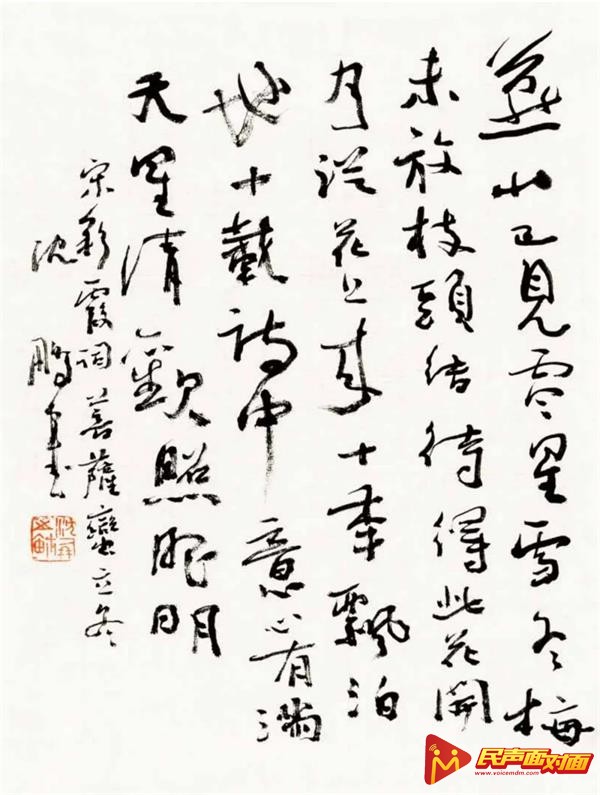 燕山已見零星雪冬梅
未放枝頭結待得此花開
月從花上來十年飄泊
地十載詩中意心有滿
天星清歡照眼明
宋彩霞詞菩薩蠻立冬
沈鵬
民声面对面
www.voicemdm.com